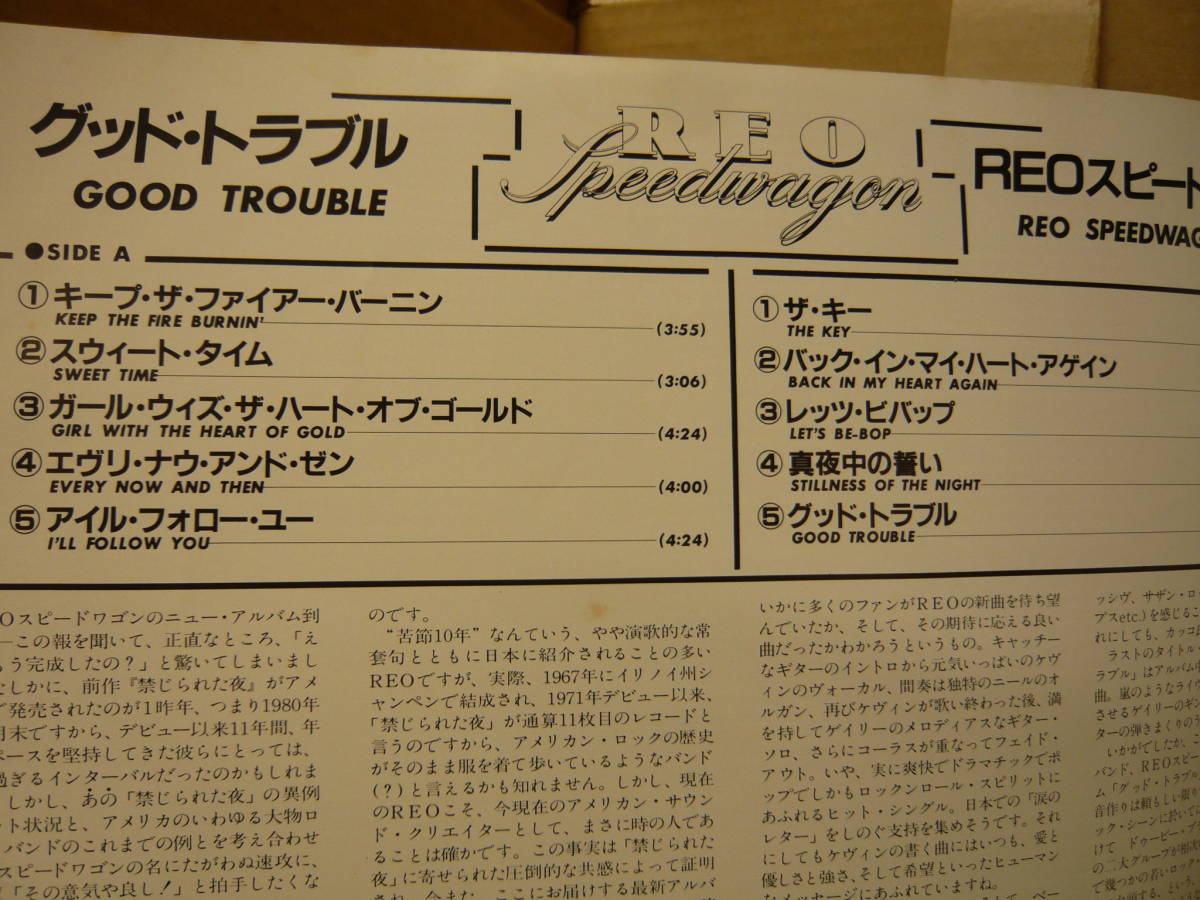 グッド・トラブル
GOOD TROUBLE
REO
Speedwagon
REOスピート
REO SPEEDWAG
●SIDE A
①キープ・ザ・ファイアー・バーニン
KEEP THE FIRE BURNIN'
(3:55)
②スウィート・タイム
SWEET TIME
(3:06)
③ガール・ウィズ・ザ・ハート・オブ・ゴールド
GIRL WITH THE HEART OF GOLD
(4:24)
④エヴリ・ナウ・アンド・ゼン
EVERY NOW AND THEN
(4:00)
⑤アイル・フォロー・ユー
I'LL FOLLOW YOU
(4:24)
①ザ・キー
THE KEY
②バック・イン・マイ・ハート・アゲイン
BACK IN MY HEART AGAIN
③レッツ・ビバップ
LET'S BE-BOP
④真夜中の誓い
STILLNESS OF THE NIGHT
⑤グッド・トラブル
GOOD TROUBLE
Oスピードワゴンのニュー・アルバム到
―この報を聞いて、正直なところ、「え
う完成したの?」と驚いてしまいまし
しかに、前作『禁じられた夜』がアメ
で発売されたのが1昨年、つまり1980年
月末ですから、デビュー以来11年間、年
ースを堅持してきた彼らにとっては、
過ぎるインターバルだったのかもしれま
しかし、あの「禁じられた夜」の異例
ット状況と、アメリカのいわゆる大物ロ
バンドのこれまでの例とを考え合わせ
スピードワゴンの名にたがわぬ速攻に、
「その意気や良し!」と拍手したくな
のです。
“苦節10年”なんていう、やや演歌的な常
套句とともに日本に紹介されることの多い
REOですが、実際、1967年にイリノイ州シ
ャンペンで結成され、1971年デビュー以来、
「禁じられた夜」が通算11枚目のレコードと
言うのですから、アメリカン・ロックの歴史
がそのまま服を着て歩いているようなバンド
(?)と言えるかも知れません。しかし、現在
のREOこそ、今現在のアメリカン・サウン
ド・クリエイターとして、まさに時の人であ
ることは確かです。この事実は「禁じられた
夜」に寄せられた圧倒的な共感によって証明
され、今また、ここにお届けする最新アルバ
いかに多くのファンがREOの新曲を待ち望
んでいたか、そして、その期待に応える良い
曲だったかわかろうというもの。キャッチー
なギターのイントロから元気いっぱいのケヴ
ィンのヴォーカル、間奏は独特のニールのオ
ルガン、再びケヴィンが歌い終わった後、満
を持してゲイリーのメロディアスなギター・
ソロ、さらにコーラスが重なってフェイド・
アウト。いや、実に爽快でドラマチックでポ
ップでしかもロックンロール・スピリットに
あふれるヒット・シングル。日本での「涙の
レター」をしのぐ支持を集めそうです。それ
にしてもケヴィンの書く曲にはいつも、愛と
優しさと強さ、そして希望といったヒューマン
なメッセージにあふれていますね。
ッシヴ、サザン・ロ
プスetc.)を感じるこ
れにしても、カッコ良
ラストのタイトル・
ラブル」はアルバム中
曲。嵐のようなライヴ
させるゲイリーのギン
ターの弾きまくりのう
いかがでしたか、こ
バンド、REOスピー
ム「グッド・トラブル
音作りは頼もしい限り
ック・シーンに於いて
けて ドゥービー・ブ
の二大グループが相次
で幾つかの若いロック